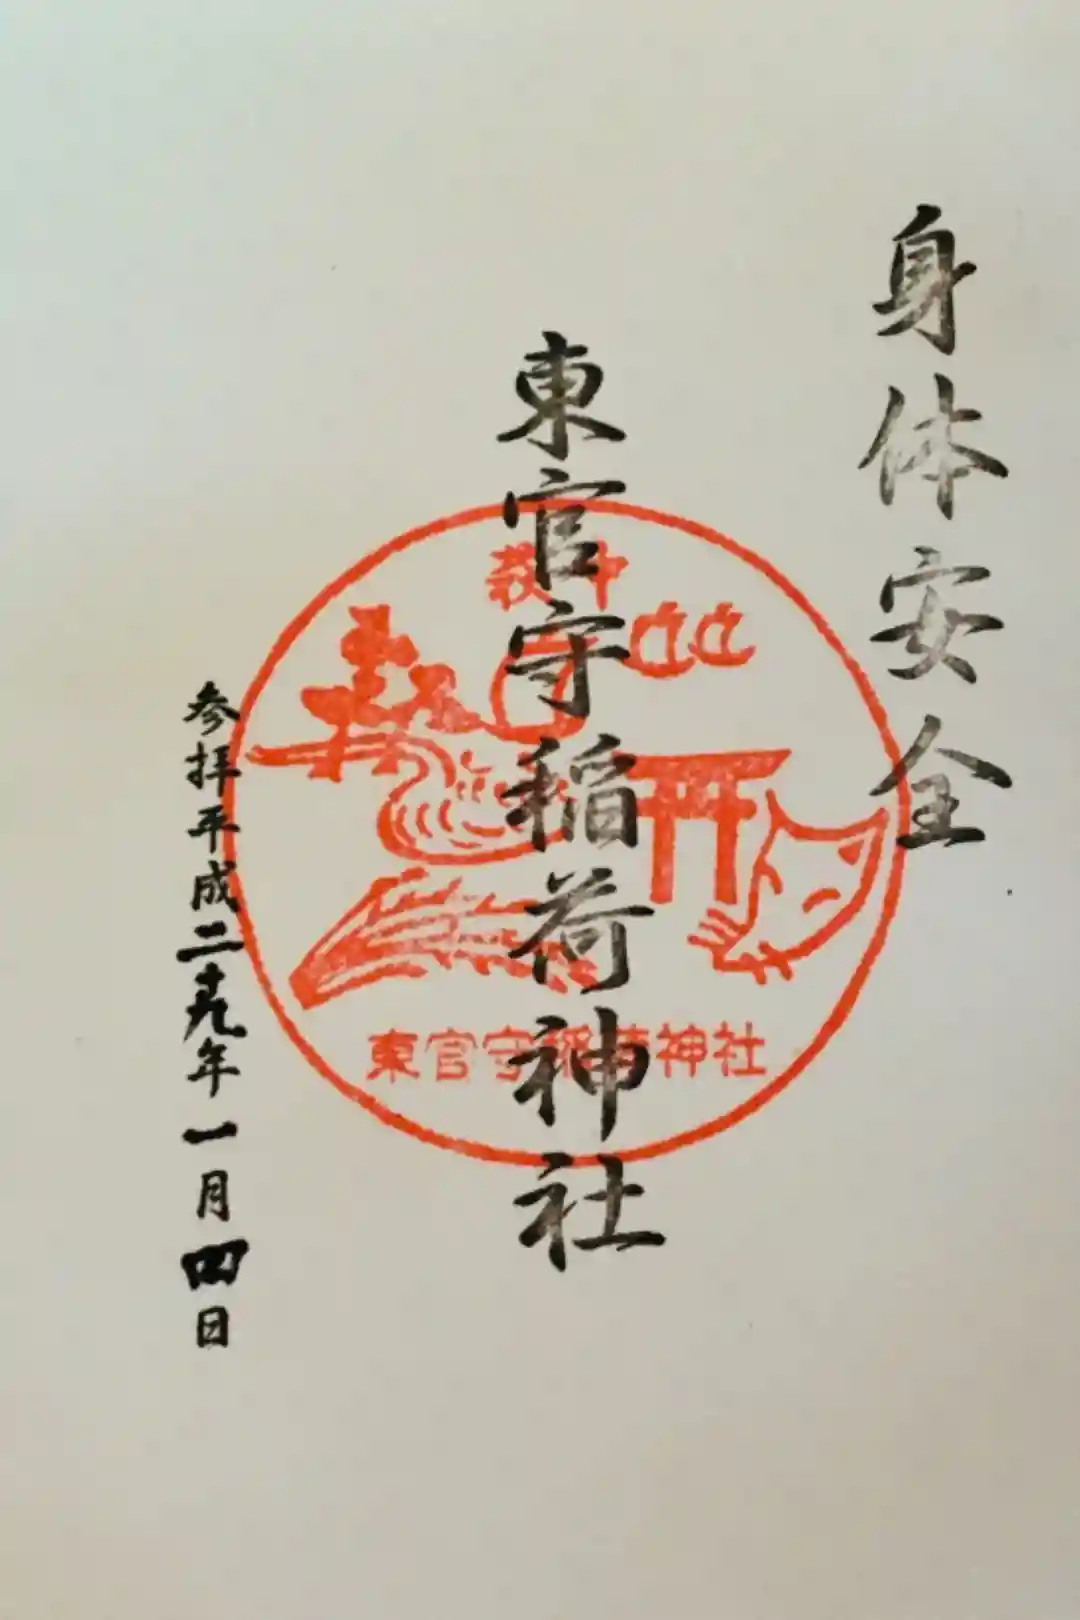 身体安全
東官守稲荷神社
参拝平成二十九年一月四日
萩中
東官守稲荷神社